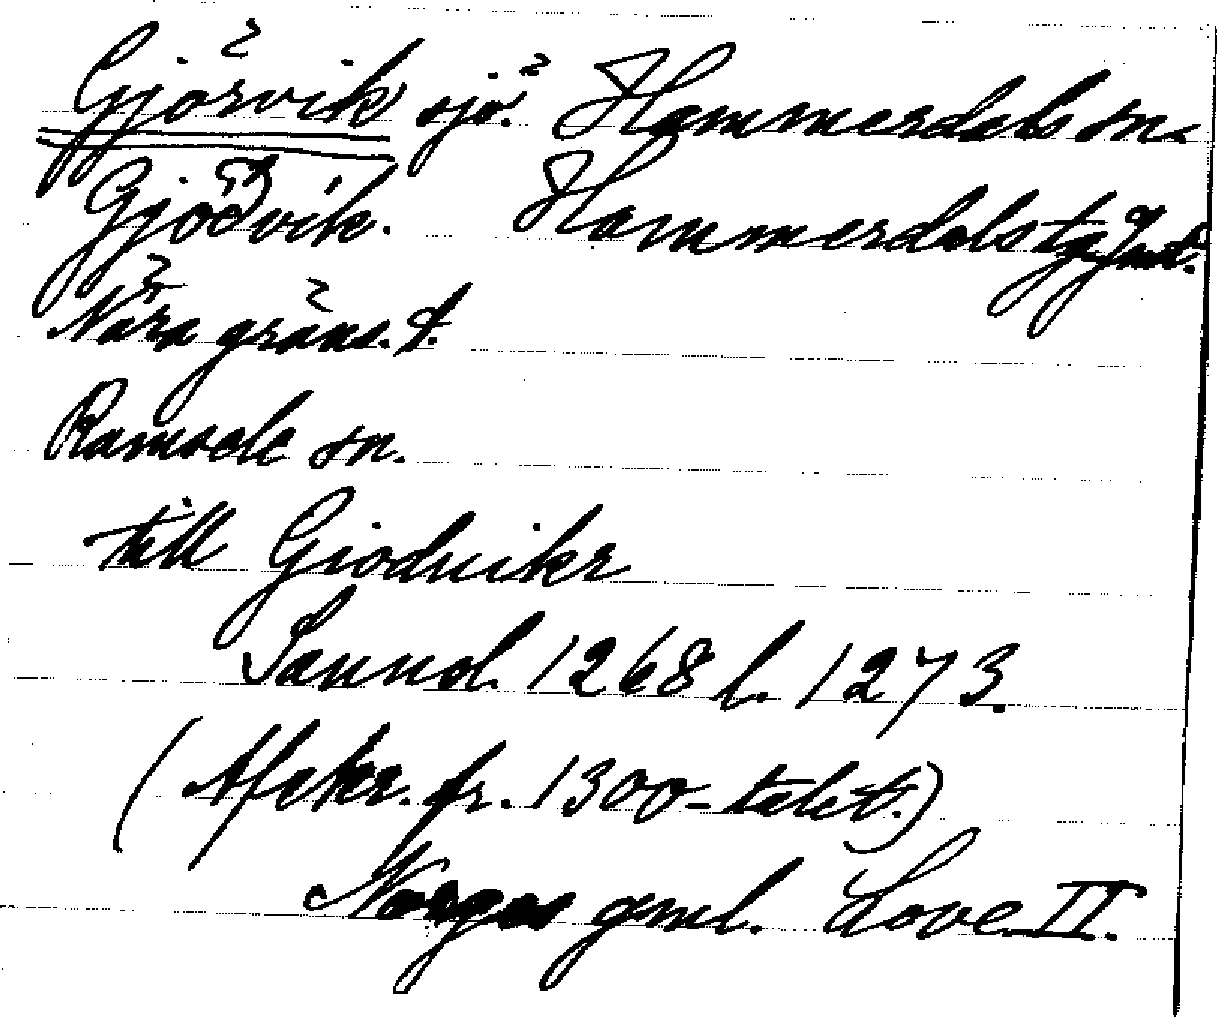 Gjörvik sjö. Hammerdals sn.
Gjödvik. Hammerdals tg Jmt.
Nära gräns. t.
Ramsele sn.
till Giodvikr
Sannol. 1268 l. 1273.
(Afskr. fr. 1300-talet.)
Norges gml. Love II.